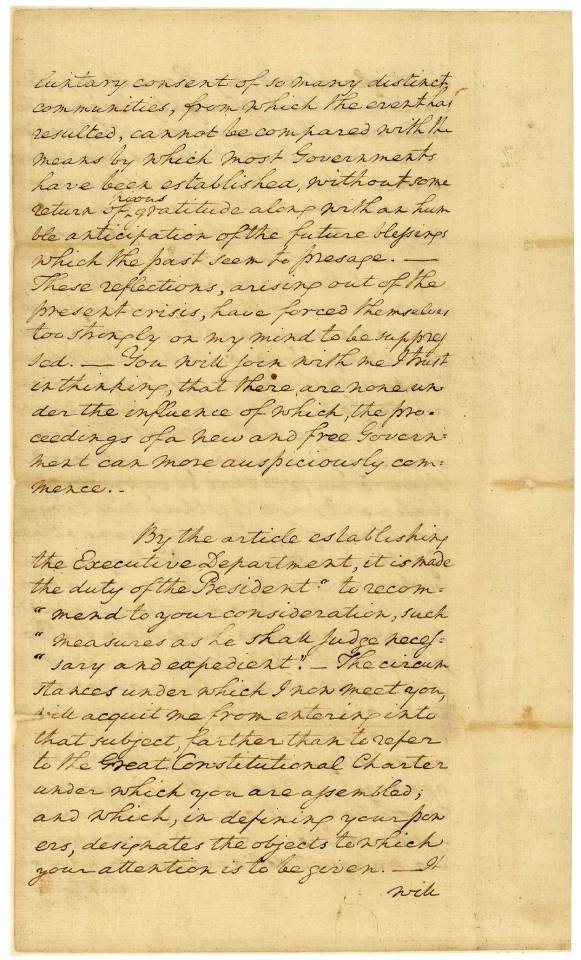 luntary consent of so many distinct
communities, from which the event has
resulted, cannot be compared with the
means by which most Governments
have been established, without some
pious
return of gratitude along with an hum
ble anticipation of the future blessings
which the past seem to presage. —
These reflections, arising out of the
present crisis, have forced themselves
too strongly on my mind to be suppres
sed. — You will join with me I trust
in thinking, that there are none un=
der the influence of which, the pro=
ceedings of a new and free Govern=
ment can more auspiciously com=
mence. -
By the article establishing
the Executive Department, it is made
the duty of the President "to recom=
"mend to your consideration, such
"measures as he shall judge neces=
"sary and expedient." — The circum
stances under which I now meet you,
will acquit me from entering into
that subject, farther than to refer
to the Great Constitutional Charter
under which you are assembled;
and which, in defining your pow
ers, designates the objects to which
your attention is to be given. — It
will